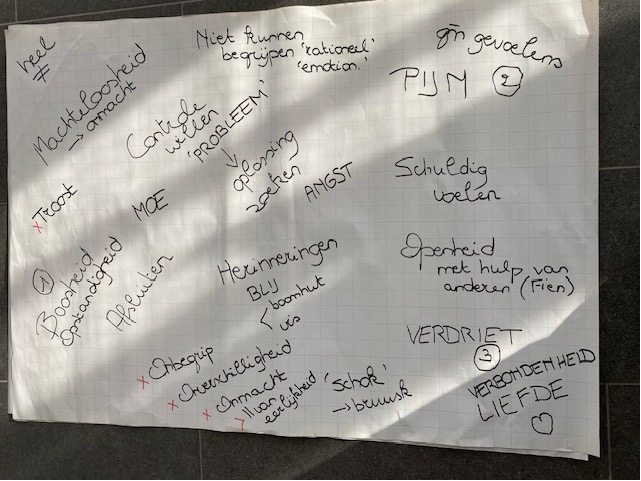 heel
≠
Niet kunnen
begrijpen 'rationeel'
'emotion.'
gn gevoelens
PIJN 2
Machteloosheid
→ onmacht
Controle
willen
'PROBLEEM'
↓
oplossing
zoeken
ANGST
Schuldig
voelen
x Troost
MOE
1
Boosheid
Opstandigheid
Afsluiten
Herinneringen
BLIJ
< boomhut
vis
Openheid
met hulp van
anderen (Fien)
VERDRIET
3
x Onbegrip
x Onverschilligheid
x Onmacht
eerlijkheid
'Schok'
→ bruusk
VERBONDENHEID
LIEFDE
♡